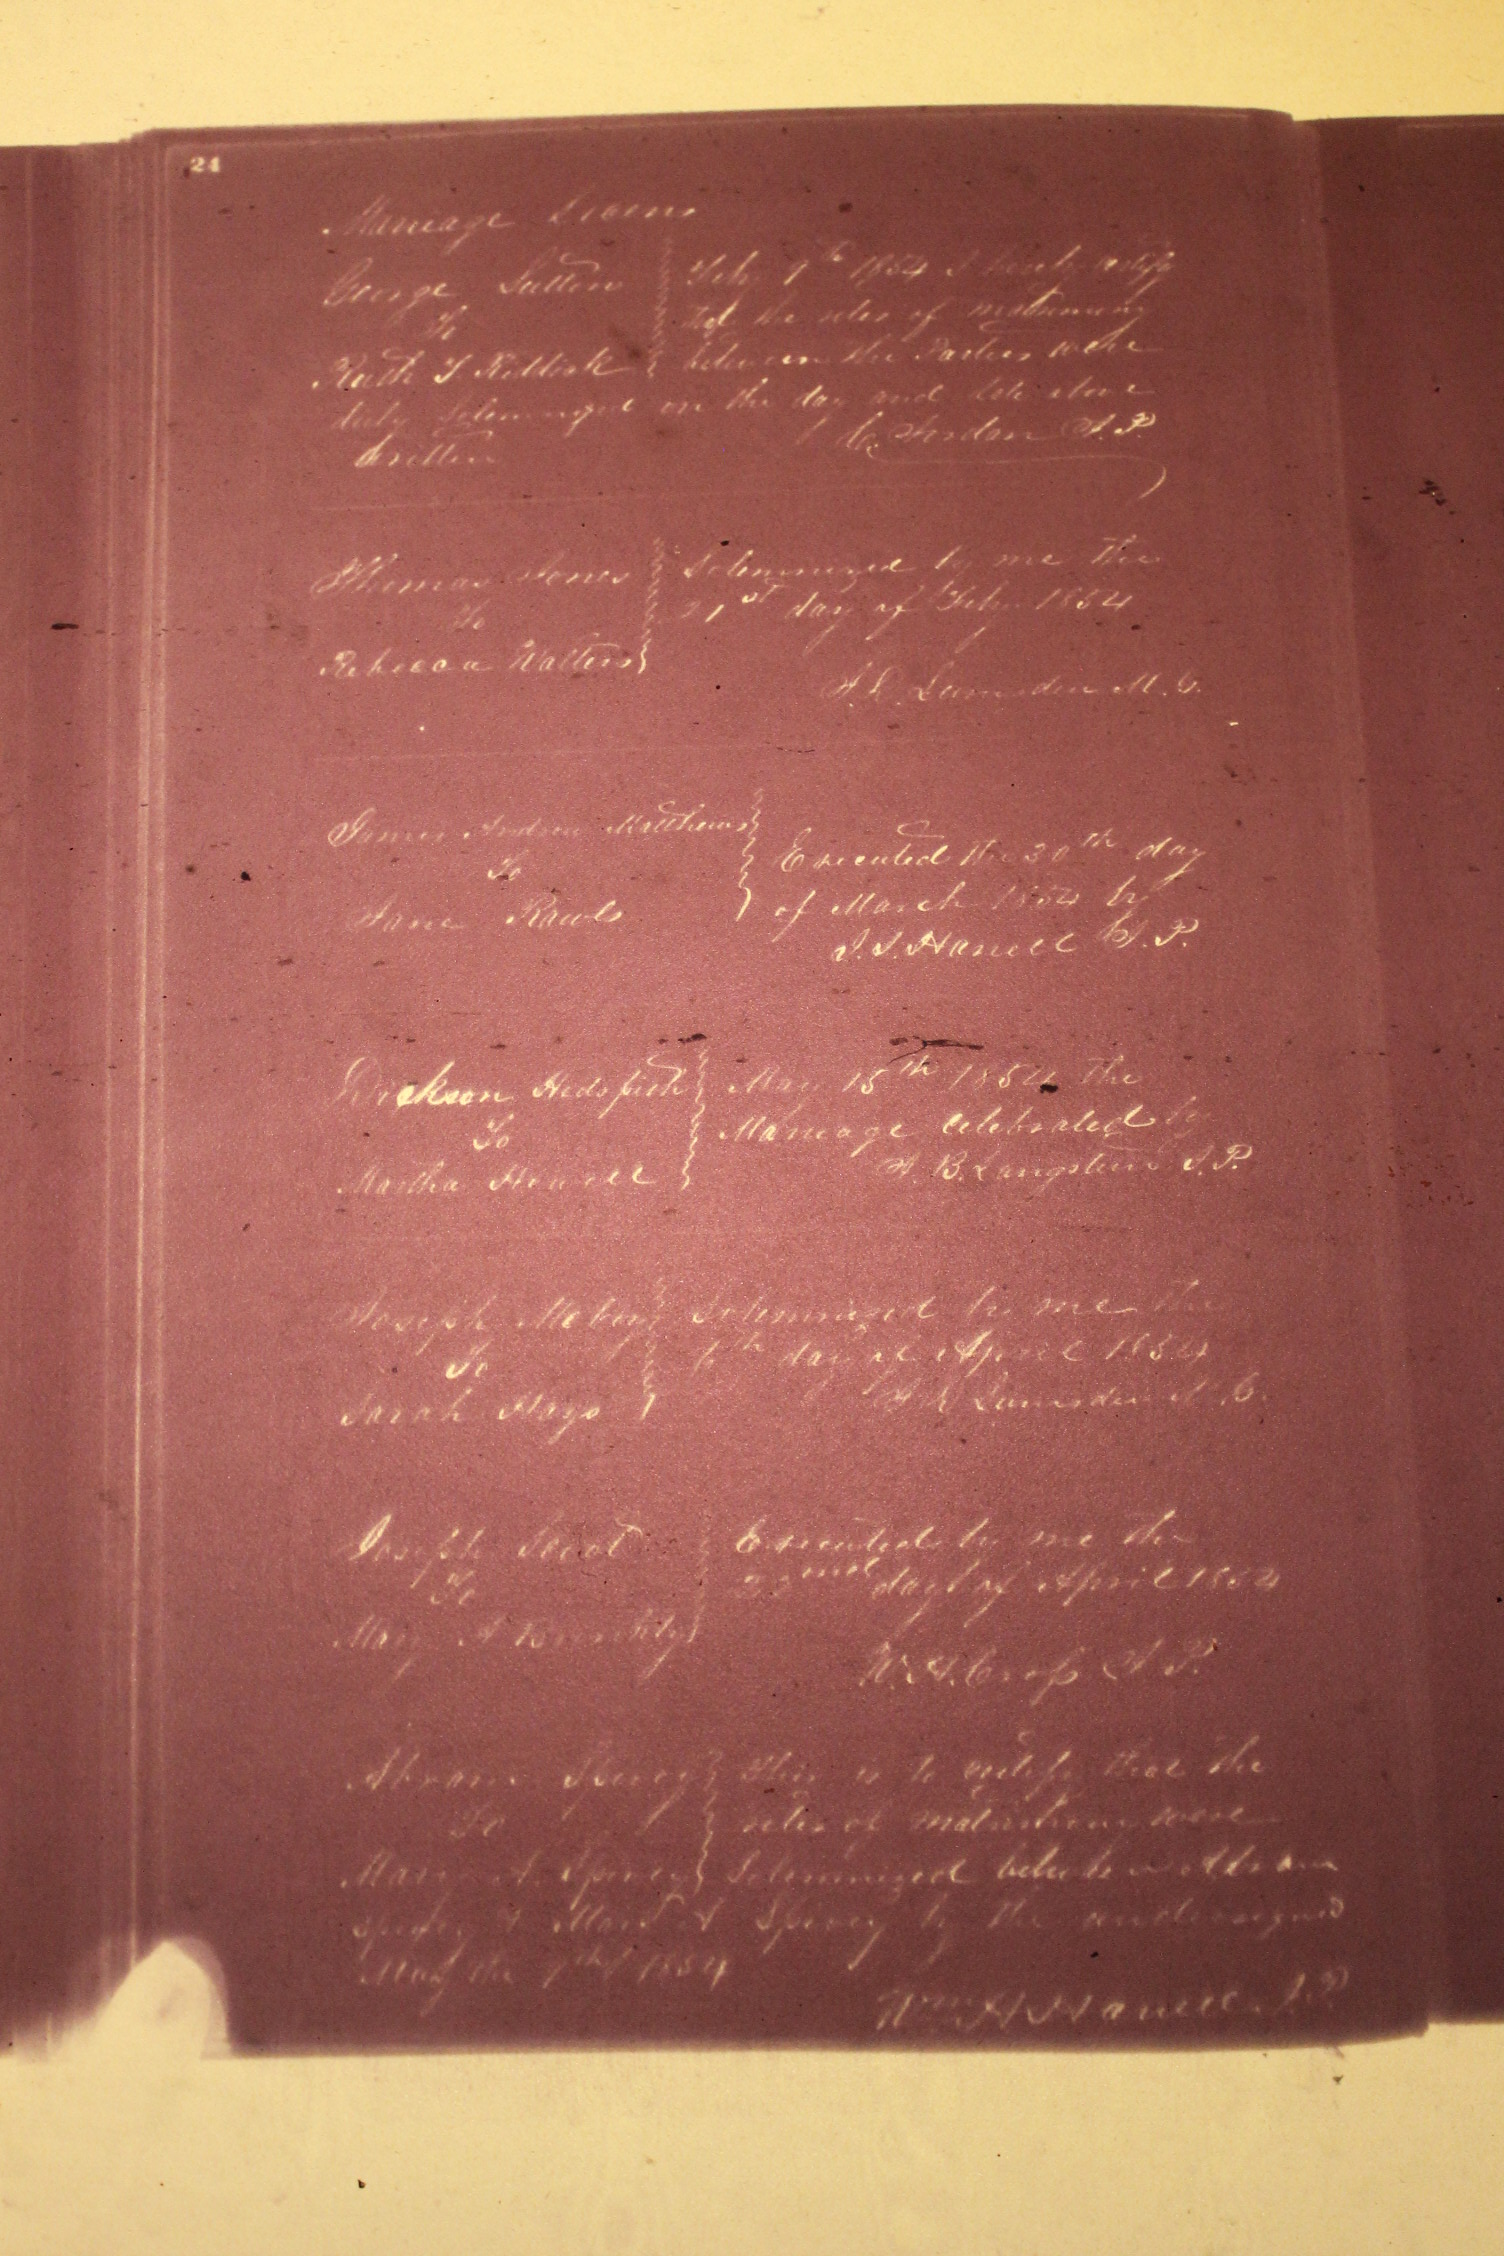 24
Marriage Licens
George Sutton
To
Ruth T Riddick
Feby 7th 1854 I hereby certify
that the rites of matrimony
between the Parties were
duly solemnized on the day and date above
written
C. Jordan J. P.
Thomas Jones
To
Rebecca Walters
Solemnized by me the
21st day of Feby 1854
Lumsden M. G.
James Andrew Matthews
To
Jane Rawls
Executed the 30th day
of March 1854 by
J. J. Harrell J. P.
Dickson Hedspeth
To
Martha Howell
May 15th 1854 the
Marriage Celebrated by
A. B. Langstun J. P.
Joseph
To
Sarah Hays
Solemnized by me the
6th day of April 1854
Lumsden M. G.
Joseph Scot
To
Mary A Brinkley
Executed by me the
22nd day of April 1854
W. H. Cross J. P.
Abram Spivey
To
Mary A. Spivey
This is to certify that the
rites of matrimony were
Solemnized between Abram
Spivey & Mary A Spivey by the undersigned
May the 7th 1854
Wm H Harrell J. P.